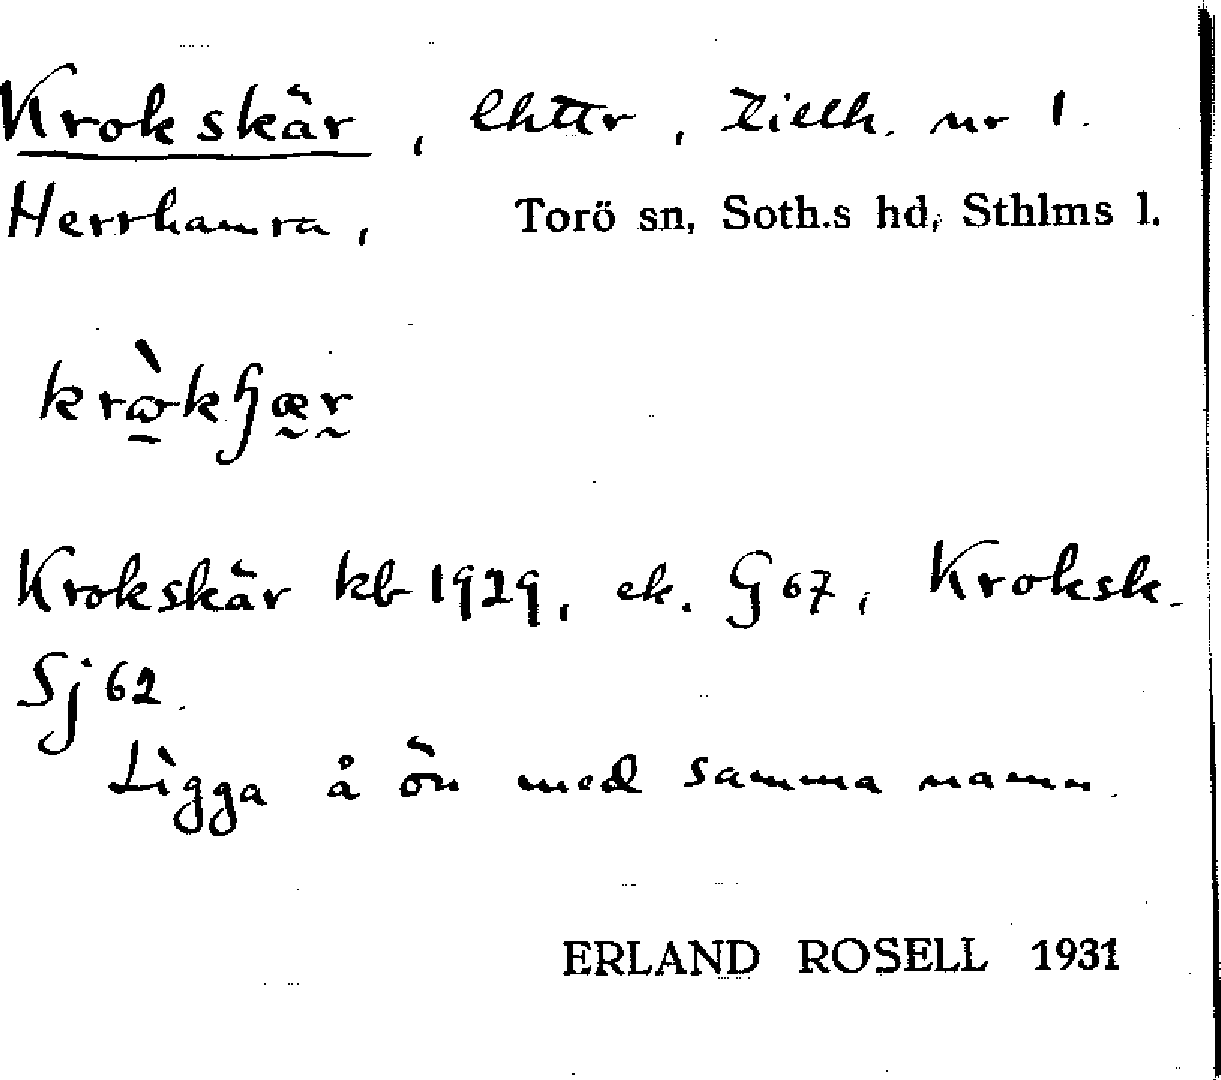 Krokskär, lhttr, tillh. nr 1.
Herrhamra, Torö sn, Soth.s hd, Sthlms l.
Krokskär kb 1929, ek. G 67, Kroksk.
Sj 62.
Ligga å ön med samma namn.
ERLAND ROSELL 1931